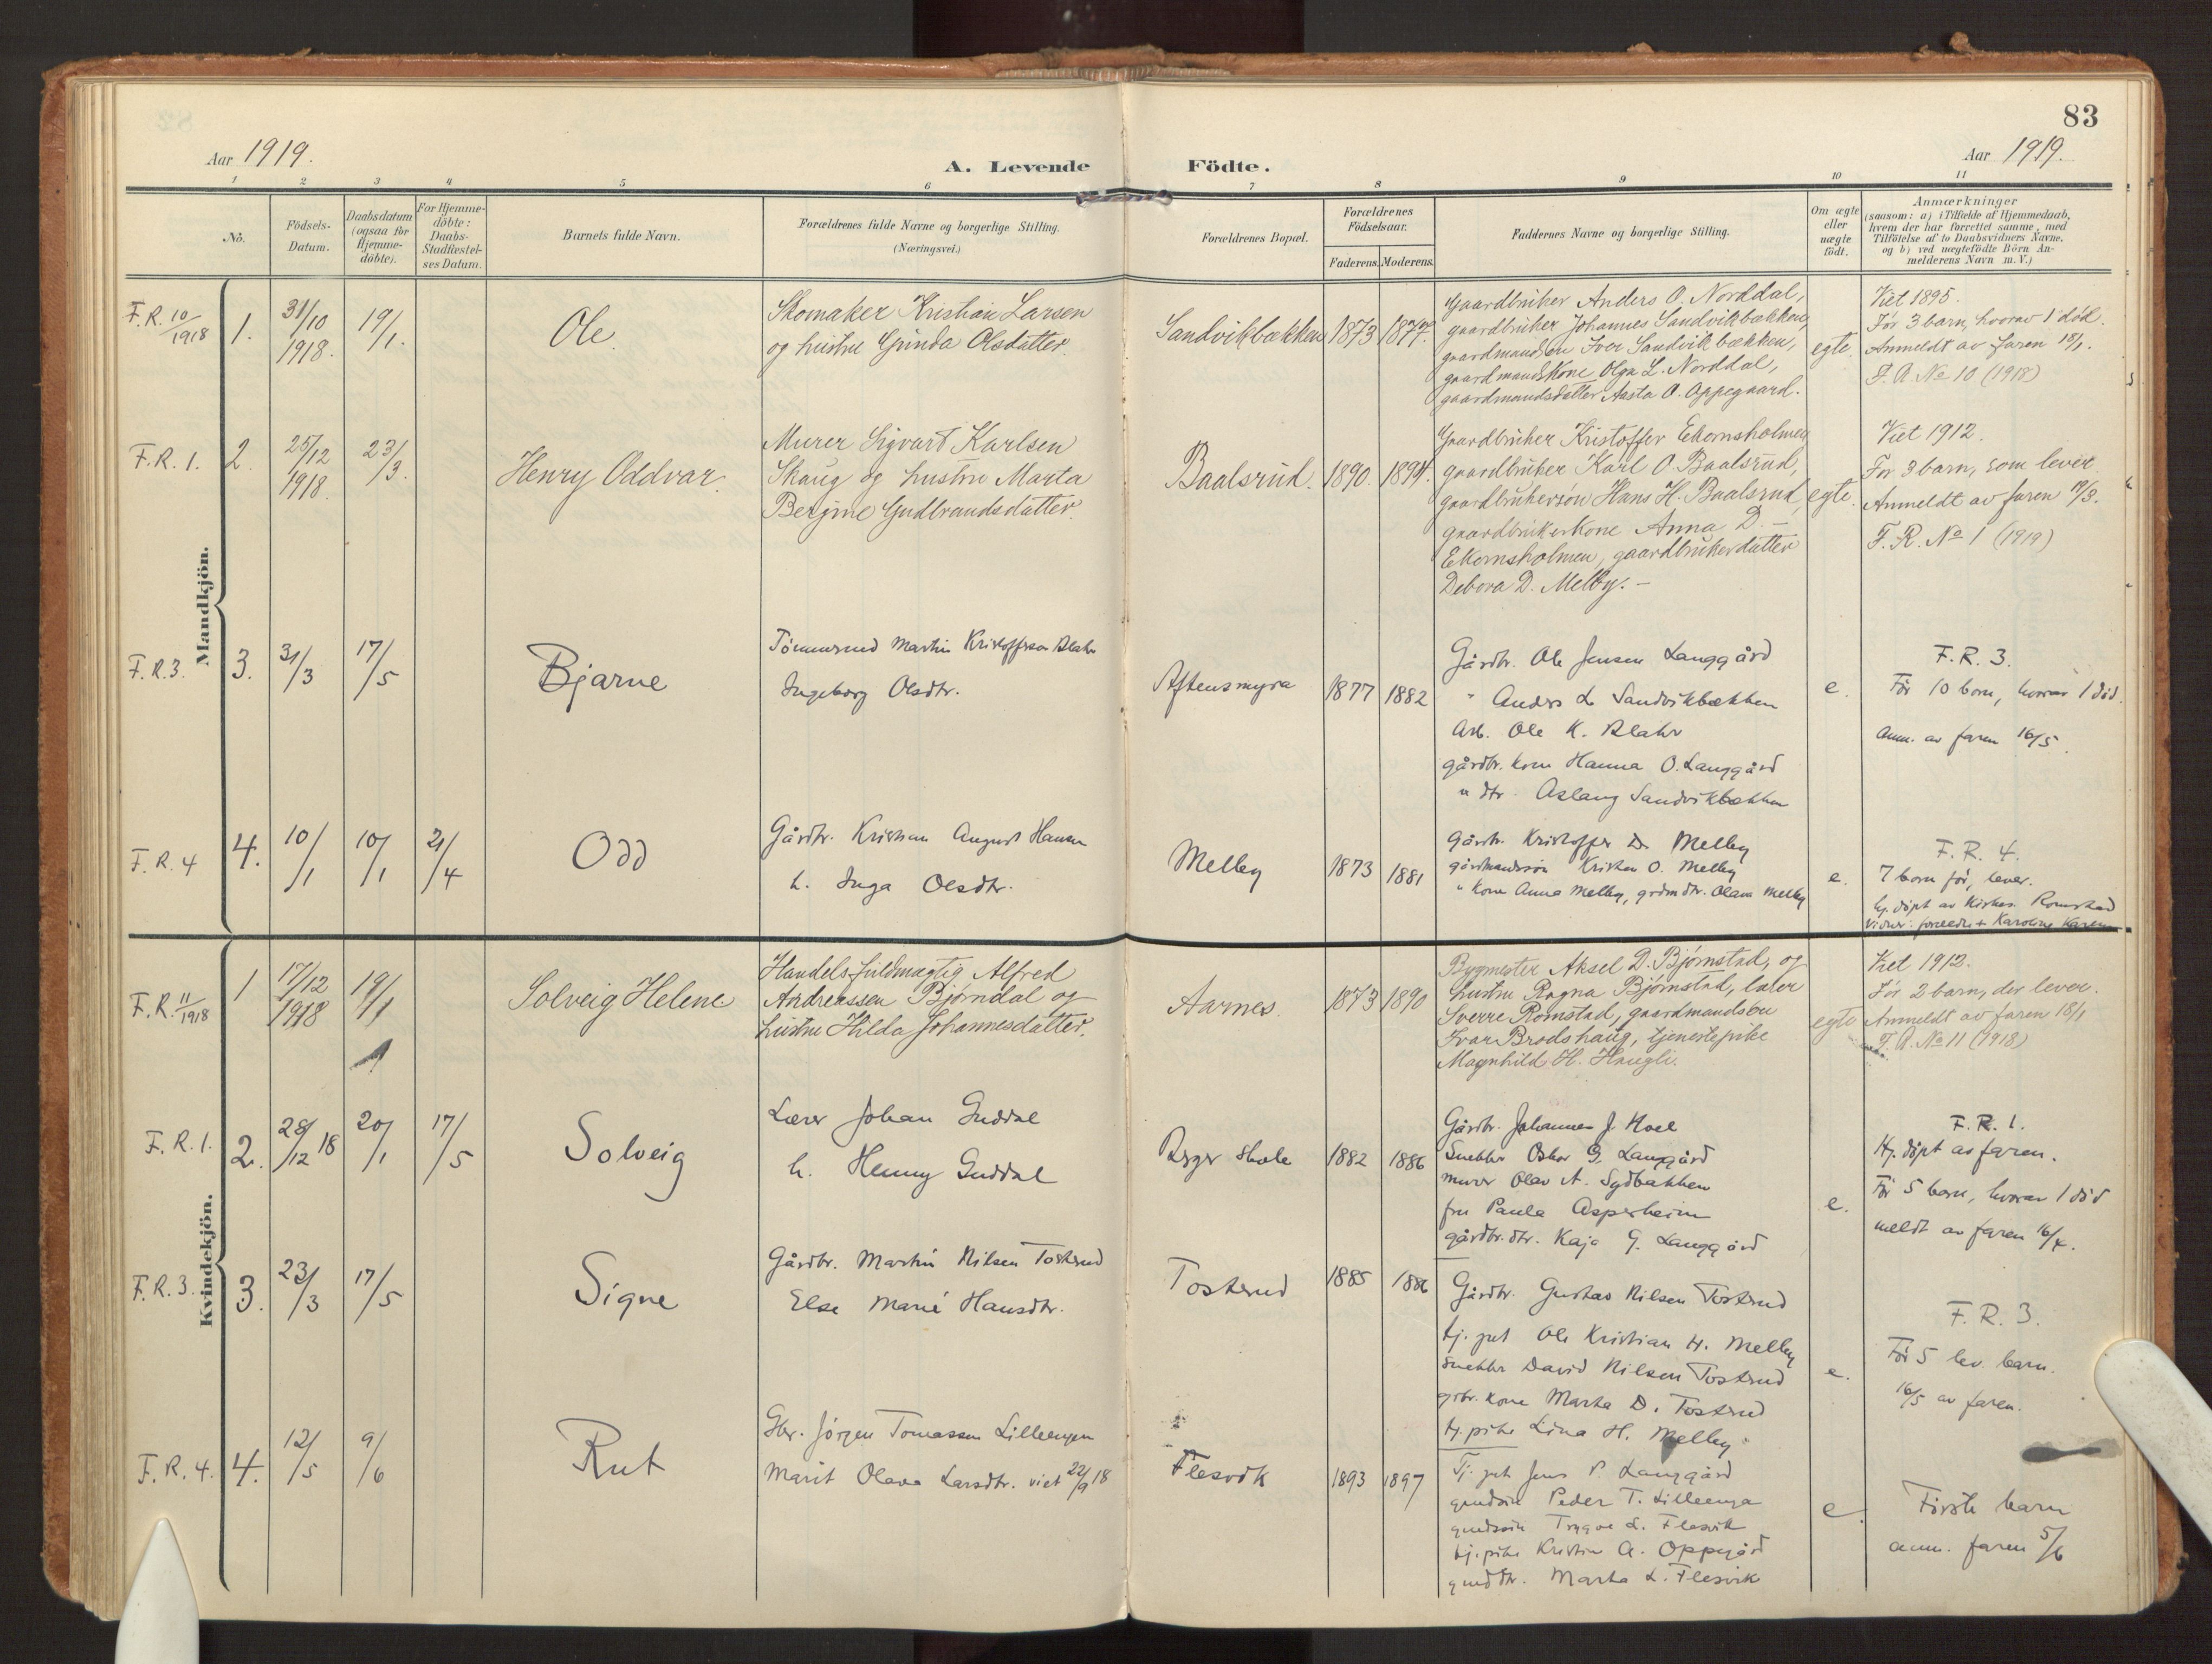 83
Aar 1919.
A. Levende Födte.
Aar 1919.
1 2 3 4 5 6 7 8 9 10 11
No.
Födsels-
Datum.
Daabsdatum
(ogsaa for
Hjemme-
döbte).
For Hjemme-
döbte:
Daabs-
Stadfæstel-
ses Datum.
Barnets fulde Navn.
Forældrenes fulde Navne og borgerlige Stilling.
(Næringsvei.)
Forældrenes Bopæl.
Forældrenes
Födselsaar.
Faderens. Moderens.
Faddernes Navne og borgerlige Stilling.
Om ægte
eller
uægte
födt.
Anmærkninger
(saasom: a) i Tilfælde af Hjemmedaab,
hvem der har forrettet samme, med
Tilföielse af to Daabsvidners Navne,
og b) ved uægtefödte Börn An-
melderens Navn m.V.)
Mandkjön.
F.R. 10/1918
1.
31/10
1918.
19/1.
Ole.
Skomaker Kristian Larsen
og hustru Gunda Olsdatter.
Sandvikbækken
1873
Gaardbruker Anders O. Norddal,
gaardbruker Johannes Sandvikbækken,
gaardmandsøn Iver Sandvikbækken,
gaardmandskone Olga L. Norddal,
gaardmandsdatter Aasta O. Oppegaard.
egte.
Viet 1895.
Før 3 barn, hvorav 1 død.
Anmeldt av faren 18/1.
F. R. No 10 (1918)
F.R. 1.
2.
25/12
1918.
23/3.
Henry Oddvar.
Murer Sigvart Karlsen
Skaug og hustru Marta
Bergine Gudbrandsdatter.
Baalsrud.
1890.
1894.
Gaardbruker Kristoffer Ekornsholmen
gaardbruker Karl O. Baalsrud,
gaardbrukersøn Hans H. Baalsrud,
gaardbrukerkone Anna D. –
Ekornsholmen, gaardbrukerdatter
Debora D. Melby. –
egte.
Viet 1912.
Før 3 barn, som lever.
Anmeldt av faren 19/3.
F. R. No 1 (1919)
F.R.3.
3.
31/3
17/5
Bjarne
Tömmermd Martin Kristoffersen Blakr
Ingeborg Olsdtr.
Aftensmyra
1877
1882
Gårdbr. Ole Jensen Langgård
" Anders L. Sandvikbækken
Arb. Ole K. Blakr
gårdbr. kone Hanna O. Langgård
" dtr. Aslaug Sandvikbækken
e.
F. R. 3.
Før 10 born, hvorav 1 död.
Anm. av faren 16/5.
F. R. 4
4.
10/1
10/1
21/4
Odd
Gårdbr. Kristian August Hansen
h. Inga Olsdtr.
Melby
1873
1881
Gårdbr. Kristoffer D. Melby
gårdmandssön Kristen O. Melby
" kone Anna Melby, grdm dtr. Olava Melby
e.
F. R. 4.
7 born før, lever.
hj. döpt av Kirkes. Romstad
Vidner: foreldre + Karoline
Kvindekjön.
F. R. 11/1918
1
17/12
1918
19/1
Solveig Helene
Handelsfuldmægtig Alfred
Andreassen Bjørndal og
hustru Hilda Johannesdatter.
Aarnes.
1873
1890
Bygmester Aksel D. Bjørnstad, og
hustru Ragna Bjørnstad, lærer
Sverre Romstad, gaardmandsøn
Ivar Brodshaug, tjenestepike
Magnhild H. Haugli.
egte
Viet 1912.
Før 2 barn, der lever.
Anmeldt av faren 18/1
F. R. No 11 (1918)
F. R. 1.
2.
28/12 18
20/1
17/5
Solveig
Lærer Johan Guddal
h. Henny Guddal
Berger skole
1882
1886
Gårdbr. Johannes J. Hoel
Snekker Oskar G. Langgård
murer Olav A. Sydbakken
fru Paula Asperheim
gårdbr. dtr. Kaja G. Langgård
e.
F. R. 1.
Hj. döpt av faren.
Før 5 barn, hvorav 1 död
meldt av faren 16/4.
F.R. 3.
3.
23/3
17/5
Signe
Gårdbr. Martin Nilsen Tosterud
Else Marie Hansdtr.
Tosterud
1885
1886
Gårdbr. Gustav Nilsen Tostrud
tj. gut Ole Kristian H. Melby
Snekker David Nilsen Tostrud
grbr. kone Marta D. Tostrud
tj. pike Lina H. Melby
e.
F. R. 3.
Før 5 lev. barn.
16/5 av faren.
F. R. 4.
4.
12/5
9/6
Rut
Gbr. Jörgen Tomassen Lilleengen
Marit Olava Larsdtr. viet 22/9 18
Flesvik
1893
1897
Tj. gut Jens P. Langgård
Peder T. Lilleenga
Trygve L. Flesvik
tj. pike Kristin A. Oppegård
Marta L. Flesvik
e
Første barn
anm. faren 5/6